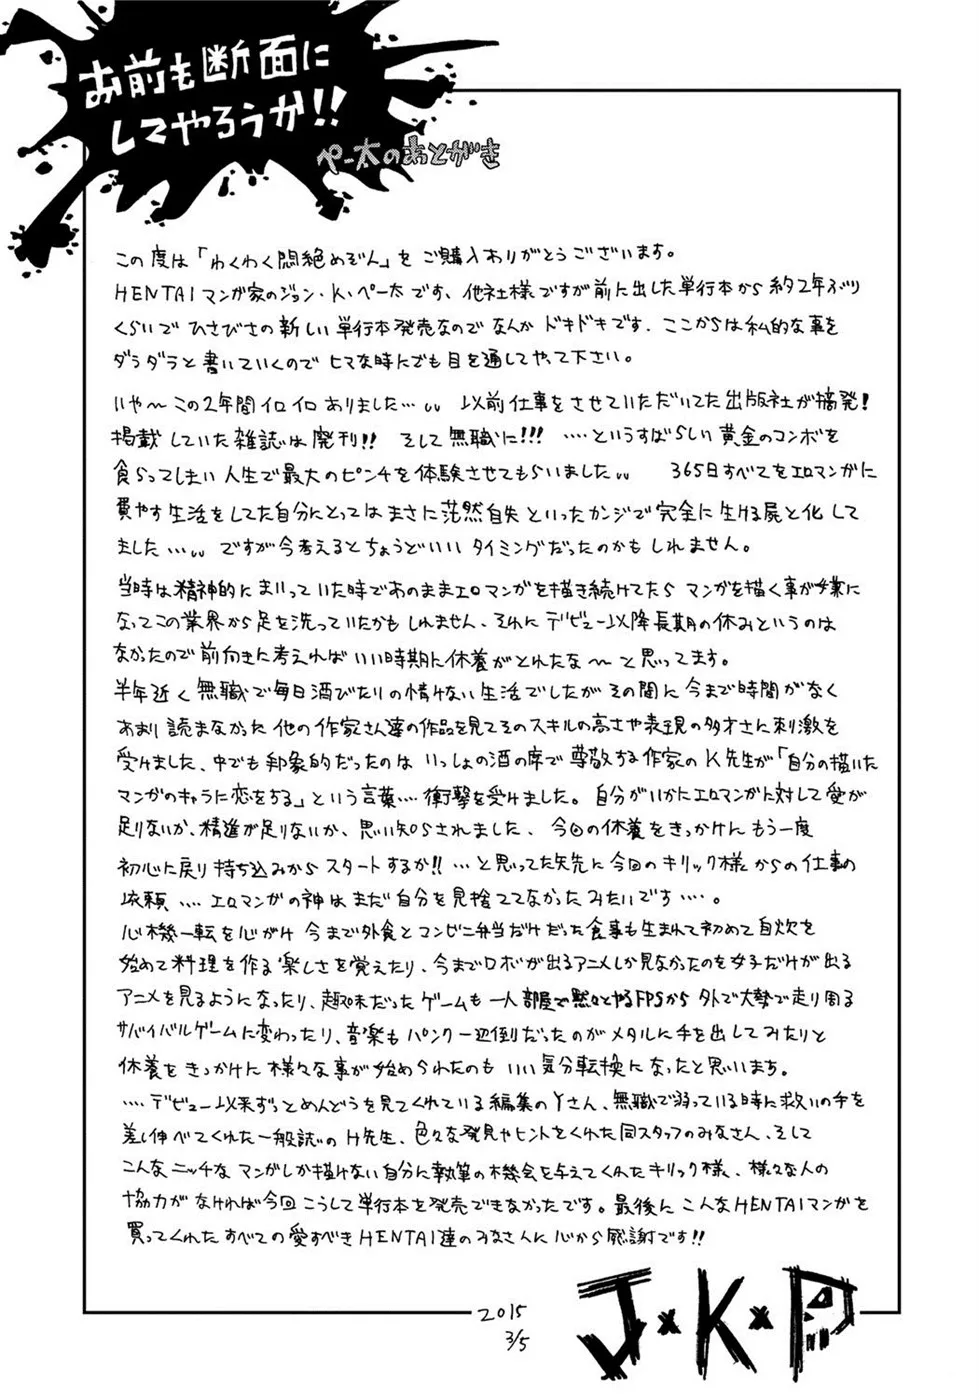 お前も断面に
してやろうか!!
ペー太のあとがき
この度は「わくわく悶絶めぞん」をご購入ありがとうございます。
HENTAIマンガ家のジョン・K・ペー太です、他社様ですが前に出した単行本から約2年ぶり
くらいでひさびさの新しい単行本発売なのでなんかドキドキです、ここからは私的な事を
ダラダラと書いていくのでヒマな時にでも目を通してやって下さい。
いや～この2年間イロイロありました…、、 以前仕事をさせていただいてた出版社が摘発!
掲載していた雑誌は廃刊!! そして無職に!!! ….というすばらしい黄金のコンボを
食らってしまい人生で最大のピンチを体験させてもらいました、、 365日すべてをエロマンガに
費やす生活をしてた自分にとってはまさに茫然自失といったカンジで完全に生ける屍と化して
ました…、、 ですが今考えるとちょうどいいタイミングだったのかもしれません。
当時は精神的にまいっていた時であのままエロマンガを描き続けてたらマンガを描く事が嫌に
なってこの業界から足を洗っていたかもしれません、それにデビュー以降長期の休みというのは
なかったので前向きに考えればいい時期に休養がとれたな～と思ってます。
半年近く無職で毎日酒びたりの情けない生活でしたがその間に今まで時間がなく
あまり読まなかった他の作家さん達の作品を見てそのスキルの高さや表現の多才さに刺激を
受けました、中でも印象的だったのはいっしょの酒の席で尊敬する作家のK先生が「自分の描いた
マンガのキャラに恋をする」という言葉….衝撃を受けました。自分がいかにエロマンガに対して愛が
足りないか、精進が足りないか、思い知らされました、今回の休養をきっかけにもう一度
初心に戻り持ち込みからスタートするか!! …と思ってた矢先に今回のキリック様からの仕事の
依頼….エロマンガの神はまだ自分を見捨ててなかったみたいです….。
心機一転を心がけ今まで外食とコンビニ弁当だけだった食事も生まれて初めて自炊を
始めて料理を作る楽しさを覚えたり、今までロボが出るアニメしか見なかったのを女子だけが出る
アニメを見るようになったり、趣味だったゲームも一人部屋で黙々とやるFPSから外で大勢で走り周る
サバイバルゲームに変わったり、音楽もパンク一辺倒だったのがメタルに手を出してみたりと
休養をきっかけに様々な事が始められたのもいい気分転換になったと思います。
….デビュー以来ずっとめんどうを見てくれている編集のYさん、無職で弱っている時に救いの手を
差し伸べてくれた一般誌のH先生、色々な発見やヒントをくれた同スタッフのみなさん、そして
こんなニッチなマンガしか描けない自分に執筆の機会を与えてくれたキリック様、様々な人の
協力がなければ今回こうして単行本を発売できなかったです。最後にこんなHENTAIマンガを
買ってくれたすべての愛すべきHENTAI達のみなさんに心から感謝です!!
2015
3/5
J×K×P